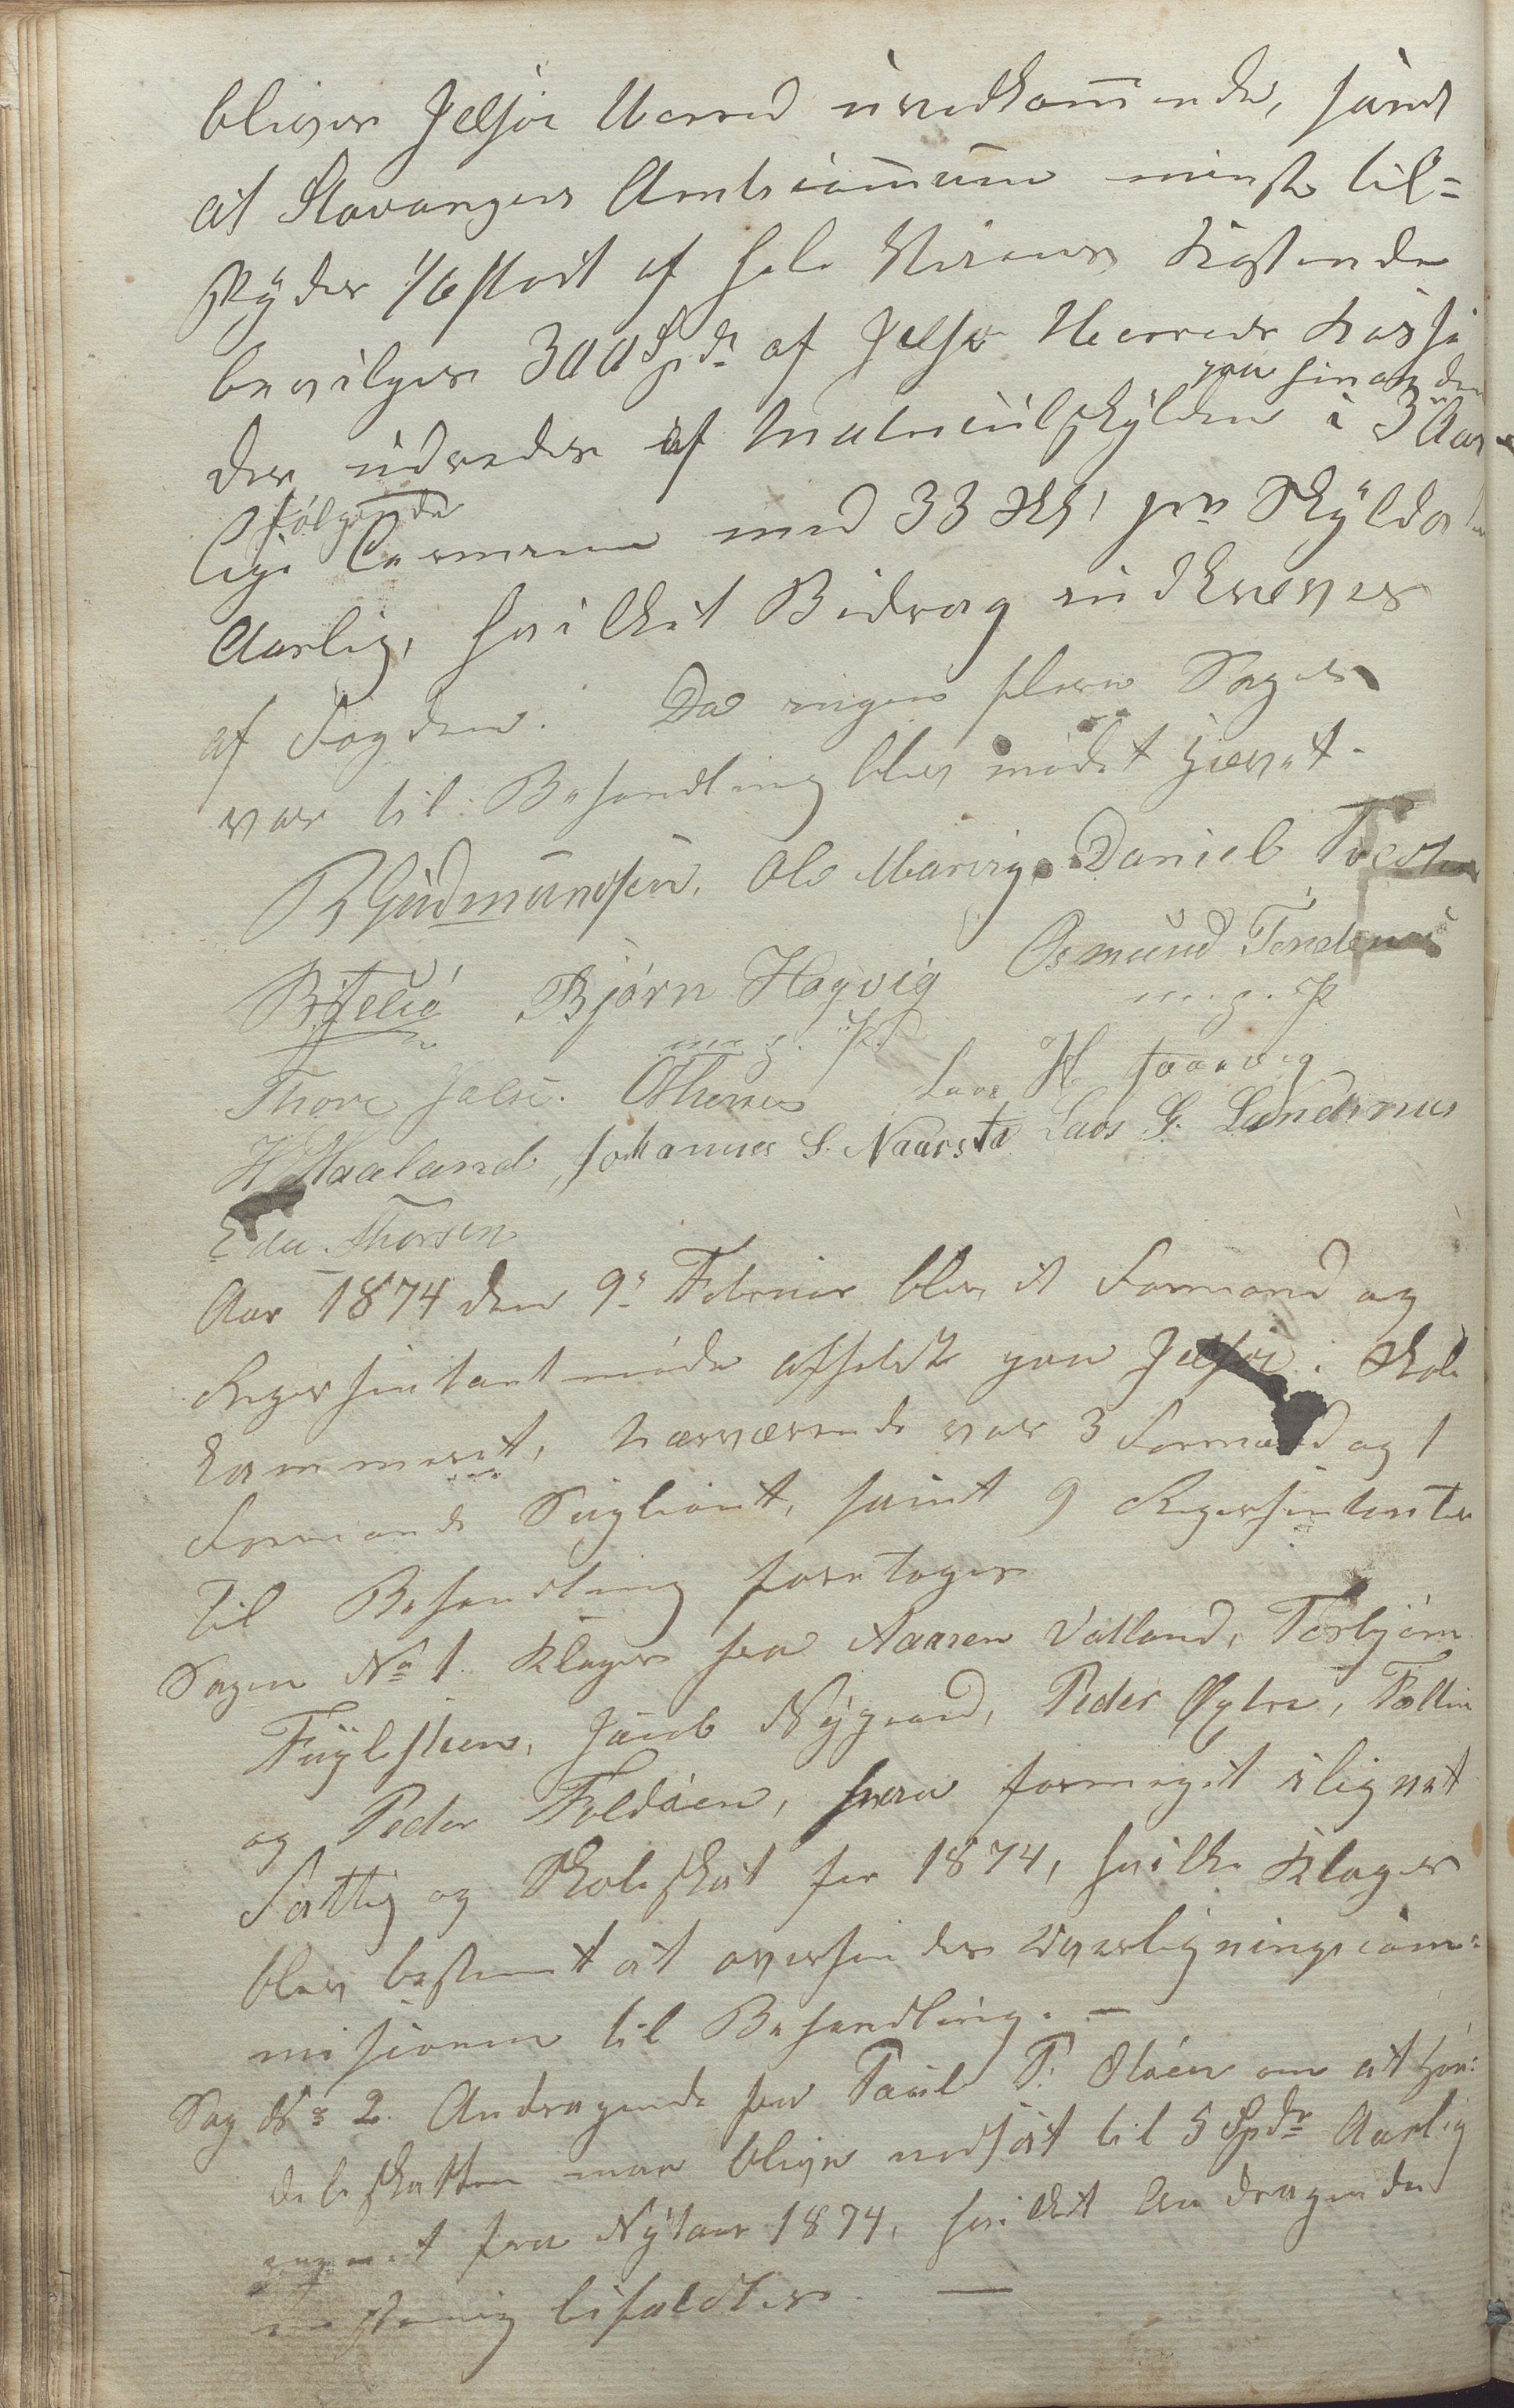 bliver Jelsøe Herred uvedkommende, samt
at Stavangers Amtscommune mindst til=
skyder 1/6 part af hele Veiens Kostende
bevilges 300 Spd af Jelsø Herreds Kasse
paa hinanden
der udredes af Matriculskylden i 3 Aar
følgende
lige Terminer med 33 Sk. pr Skyldda
Aarlig, hvilket Bidrag indkræves
af Fogden. Da ingen flere Sager
var til Behandling blev mødet hævet.
R Gudmundsen, Ole Marvig. Daniel
B. Jelsø Bjørn Hagvig Osmund Tendenæs
m. g. P. m. g. P
Thore Jelsø. Lars H Haarvig
H Haaland, Johannes S. Naarstø Lars G. Landsnæs
Edu. Thorsen
Aar 1874 den 9de Februar blev et Formand og
Repræsentantmøde afholdt paa Jelsøe Skole
kammeret, Nærværende var 3 Formænd og 1
Formands Supleant, samt 9 Repræsentanter
Til Behandling foretoges
Sagen No 1. Klager fra Aanen Vatland, Torbjørn
Fuglestien, Jacob Nygaard, Peder Øgtre, Pollin
og Peder Foldøen, paa formeget ilignet
Fattig og Skoleskat for 1874, hvilke Klager
blev bestemt at oversendes Overligningscom=
misionen til Behandling. —
Sag No 2. Andragende fra Paul P. Eloen om at han=
delsskatten maa blive nedsat til 5 Spdr Aarlig
regnet fra Nytaar 1874, hvilket Andragende
enstemig bifaldtes. —